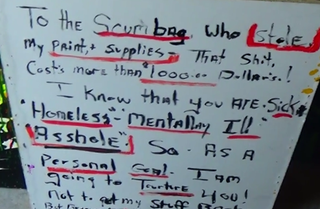 To the Scumbag, Who Stole
My paint,+ Supplies- That Shit,
Costs more than $1000.00 Dollar's.!
I Know that you ARE.Sick
"Homeless"- Mentallay Ill!
Asshole". So. As A
Personal Goal. I am
going to Torture you!
not to get my Stuff Back